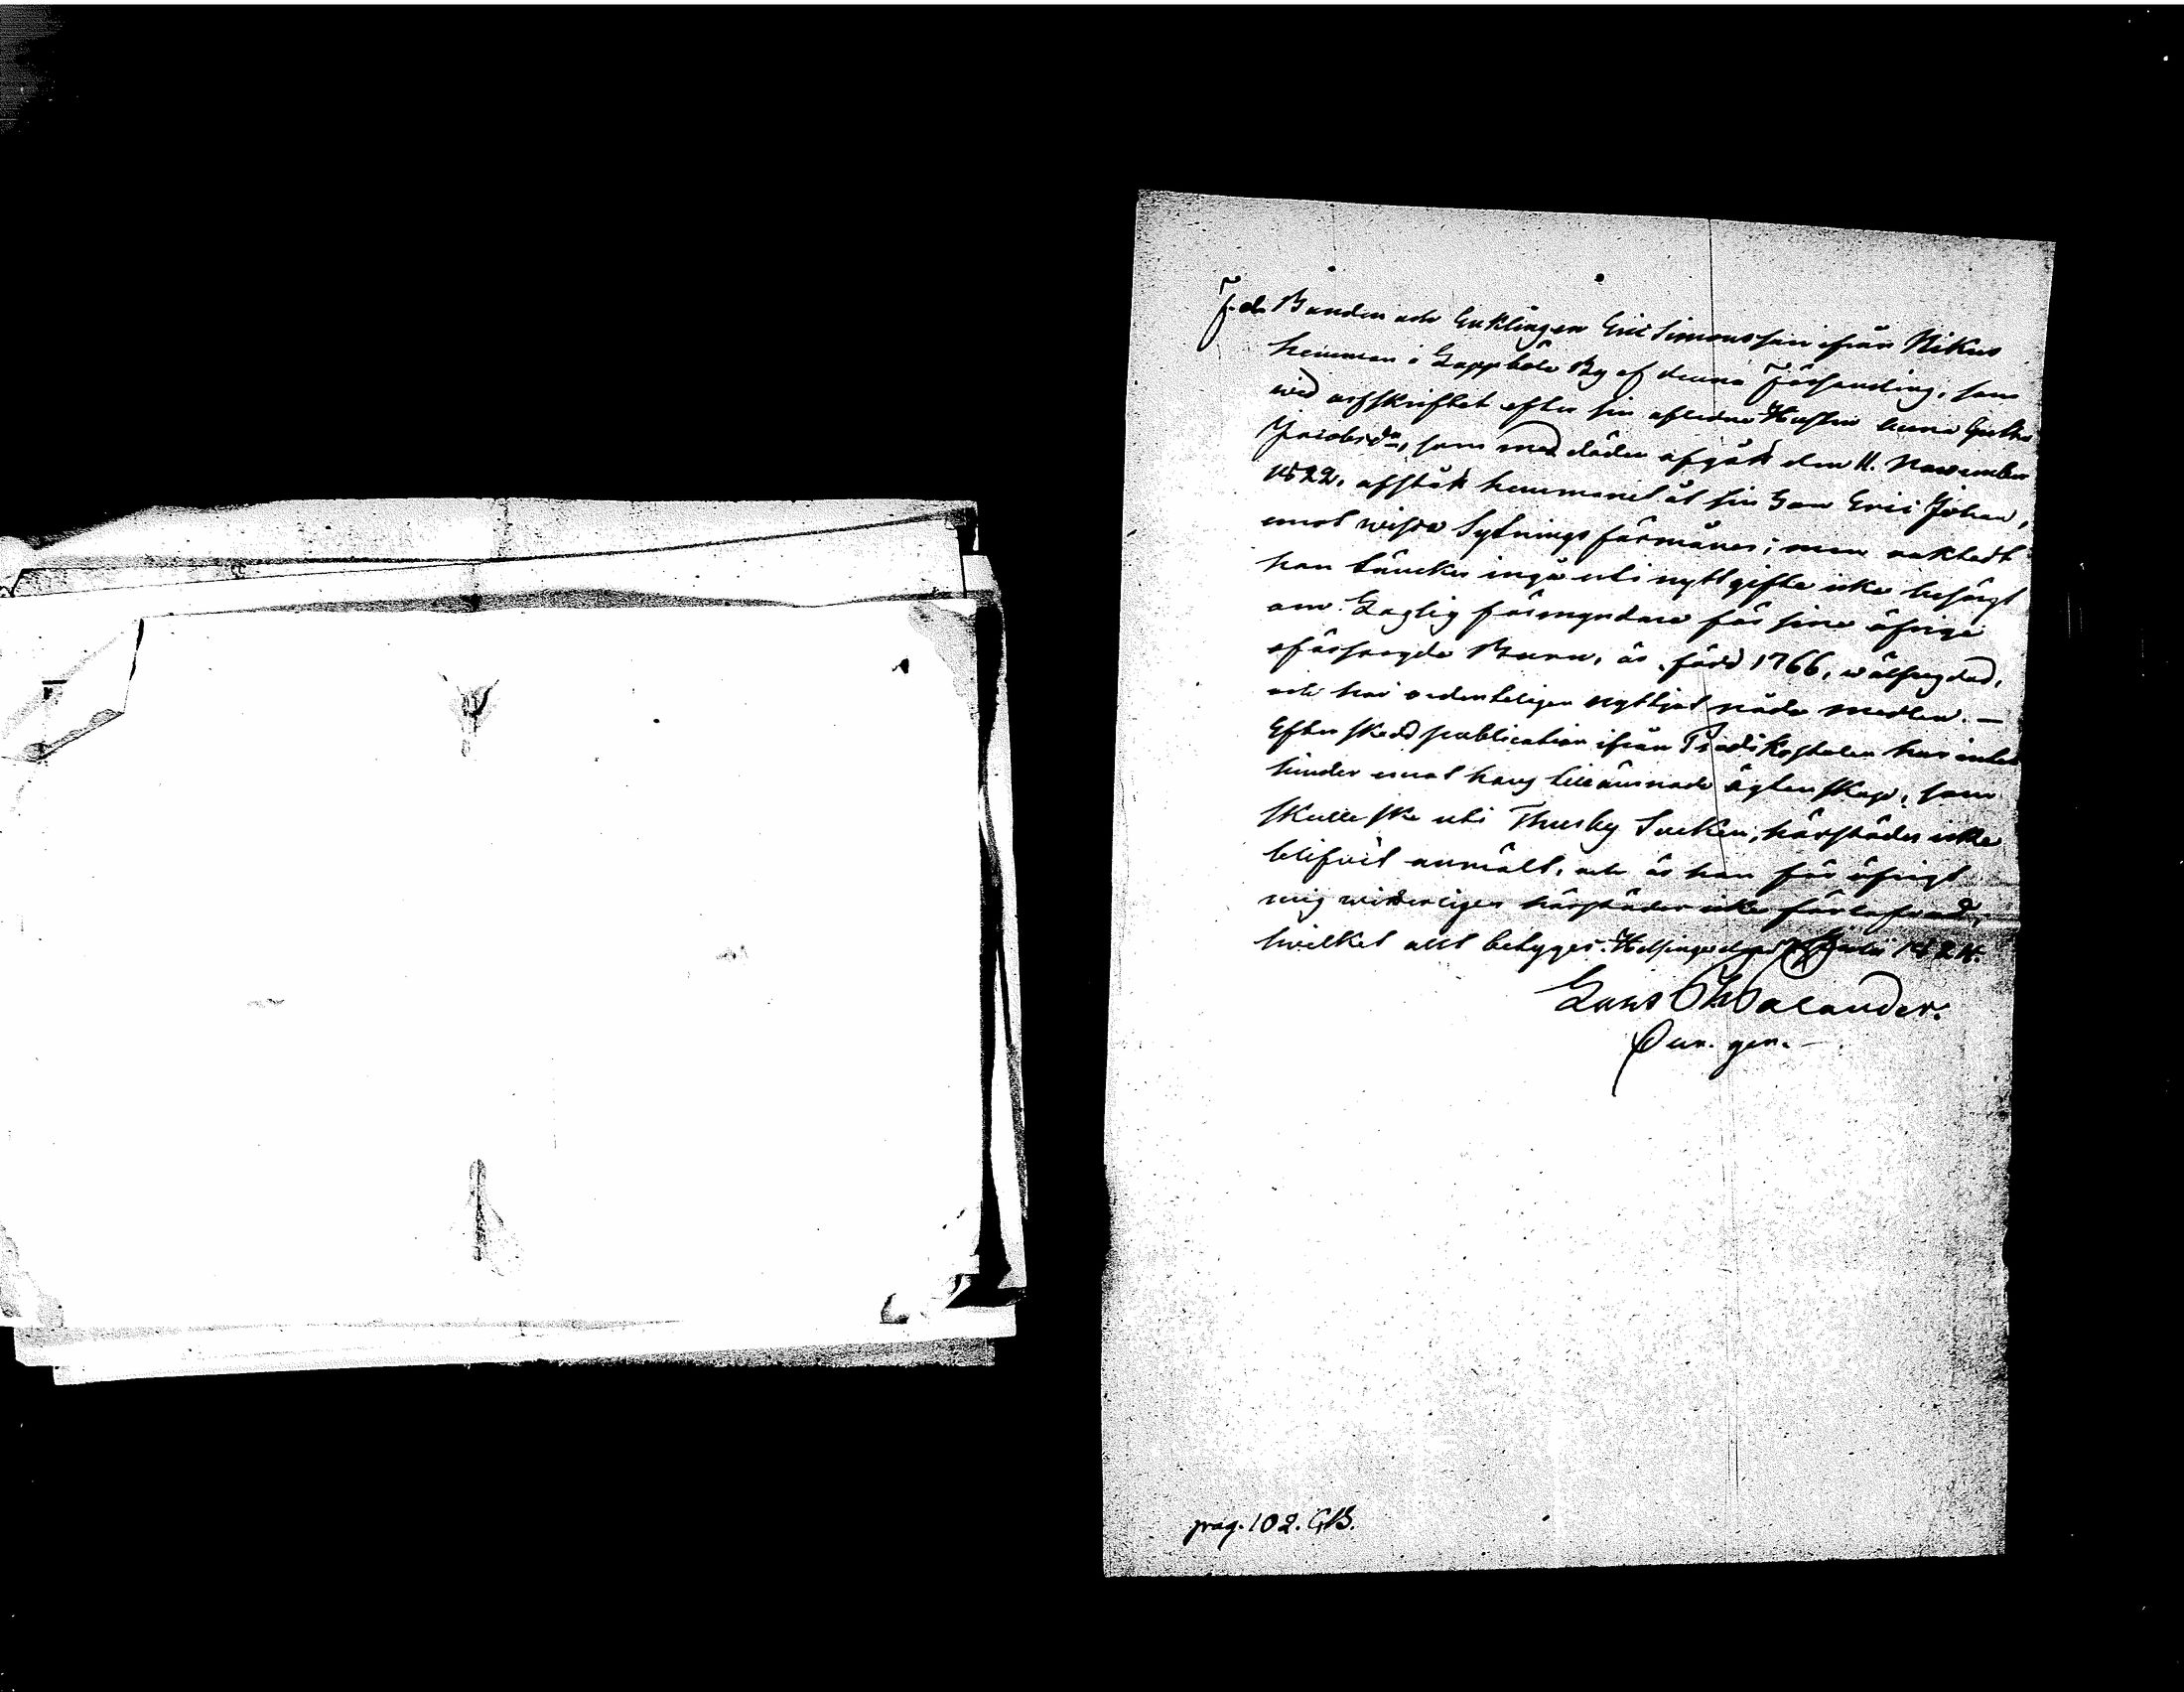 F. d. Bonden och Enklingen Eric Simonsson ifrån Nikus
hemman i Gappbole By af denna Församling, som
wid arfskiftet efter sin aflidna Hustru Anna Greta
Jacobsdr, som med döden afgådt den 11. November
1822, afstådt hemmanet åt sin Son Eric Johan,
emot wissa Sytnings förmåner; men
han täncker ingå uti nytt gifte icke besörgt
om Laglig förmyndare för sine öfrige
oförsörgde Barn, är född 1766, wälfrägdad,
och har ordenteligen nyttjat nåde medlen. —
Efter skedd publication ifrån Predikostolen har intet
hinder emot hans tillämnade ägtenskap, som
skulle ske uti Thusby Socken, härstädes icke
blifvit anmält, och är han för öfrigt
mig witterligen härstädes icke förlofwad,
hwilket allt betygges. Helsinge d. Julii 1824.
Walander.
gen. —
pag. 102. GB.